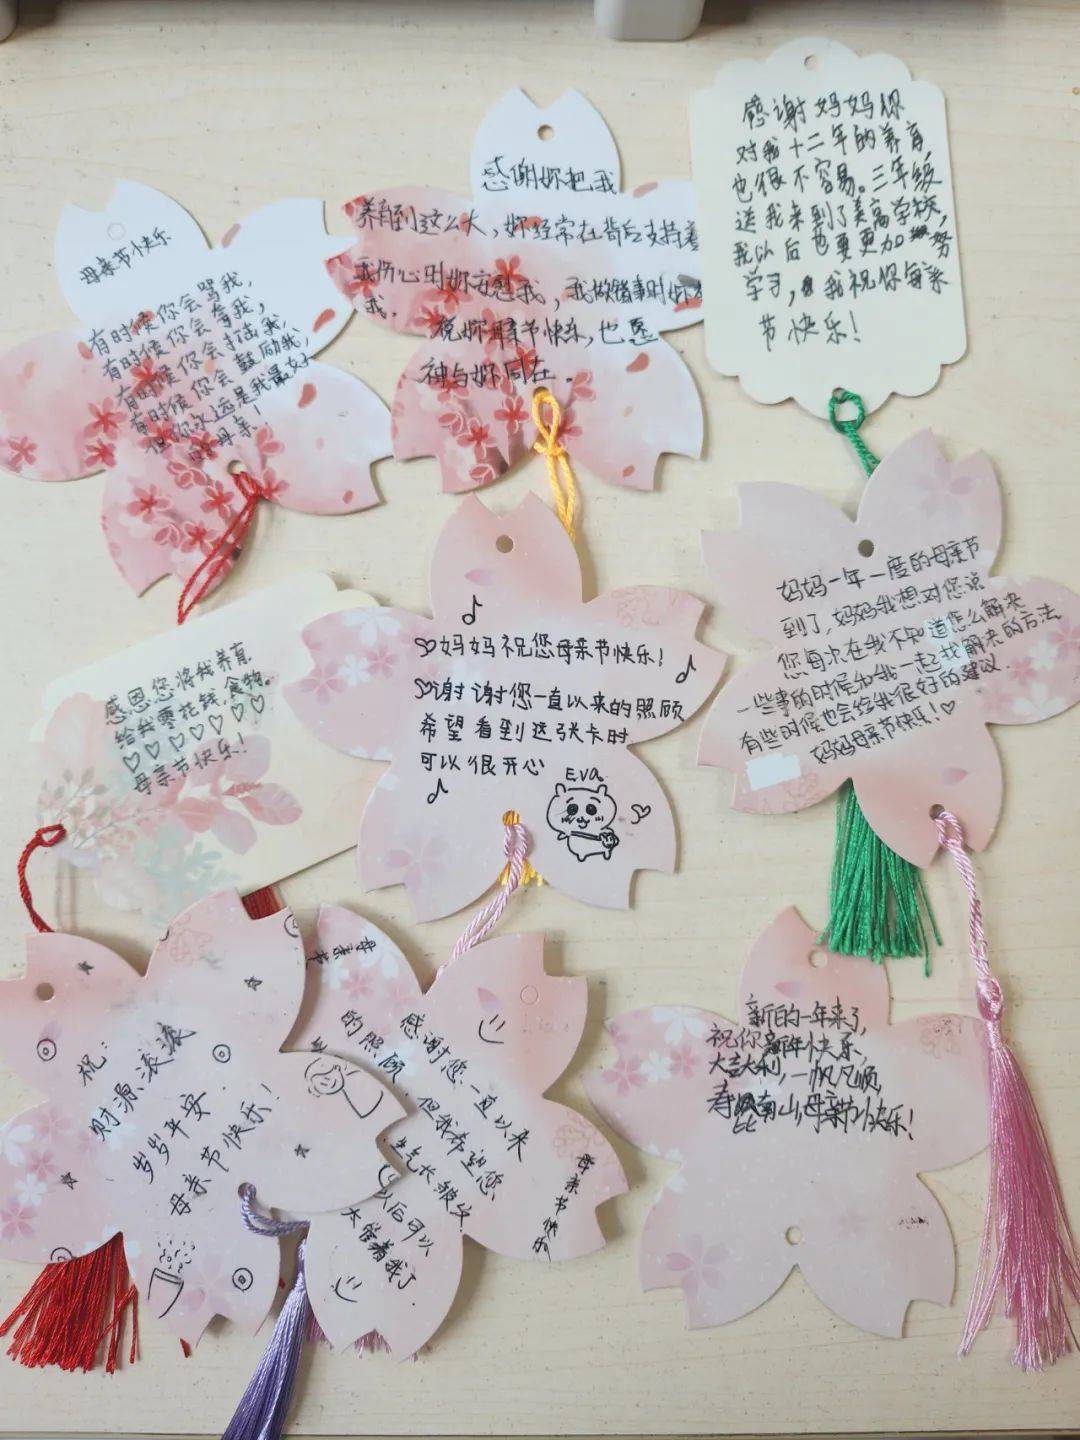 母亲节快乐
有时候你会骂我,
有时候你会夸我,
有时候你会打击我,
有时候你会鼓励我,
但你永远是我最好
的母亲!
感谢妳把我
养育到这么大,妳经常在背后支持着
我伤心时妳安慰我,我做错事时妳
我.
祝妳母亲节快乐,也愿
神与妳同在。
感谢妈妈你
对我十二年的养育,
也很不容易。三年级
送我来到了美高学校,
我以后也要更加努
学习,我祝你母亲
节快乐!
感恩您将我养育,
给我零花钱,食物。
♡♡♡♡♡♡
母亲节快乐!
♡妈妈祝您母亲节快乐!
♡谢谢您一直以来的照顾
希望看到这张卡时
可以很开心
Eva
妈妈一年一度的母亲节
到了,妈妈我想对您说
您每次在我不知道怎么解决
一些事的时候和我一起找解决的方法
有些时候也会给我很好的建议.
妈妈母亲节快乐!♡
祝:
财源滚滚
岁岁平安.
母亲节快乐!
感谢您一直以来
的照顾.但我希望您,
生气长皱纹.
以后可以
母亲节快乐
新的一年来了,
祝你新年快乐
大吉大利,一帆风顺,
寿比南山,母亲节快乐!